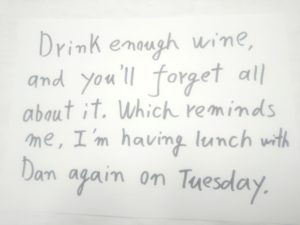 Drink enough wine,
and you'll forget all
about it. Which reminds
me, I'm having lunch with
Dan again on Tuesday.